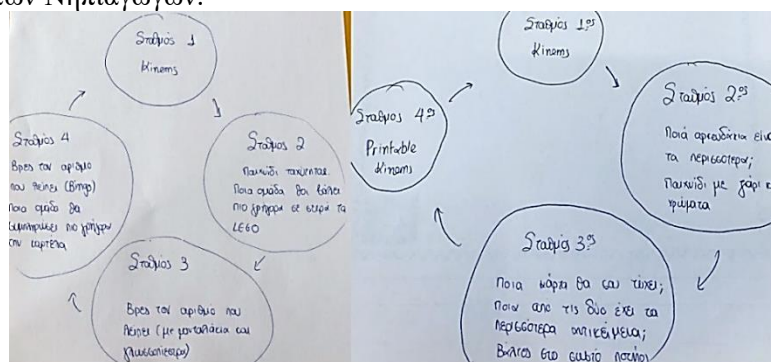 Νηπιαγωγών.
Σταθμός 1
Kinems
Σταθμός 2
Παιχνίδι ταχύτητας.
Ποια ομάδα θα βάλει
πιο γρήγορα σε σειρά τα
LEGO
Σταθμός 3
Βρες τον αριθμό που
λείπει (με μανταλάκια και
γλωσσοπίεστρα)
Σταθμός 4
Βρες τον αριθμό
που λείπει (Bingo)
Ποια ομάδα θα
συμπληρώσει πιο γρήγορα
την καρτέλα
Σταθμός 1ος
Kinems
Σταθμός 2ος
Ποιά αρκουδάκια
τα περισσότερα;
Παιχνίδι με ζάρι
χρώματα
Σταθμός 3ος
Ποια κάρτα θα σου τύχει;
Ποια από τις δύο έχει τα
περισσότερα αντικείμενα;
Βάλτες στο σωστό ποτήρι
Σταθμός 4ος
Printable
Kinems